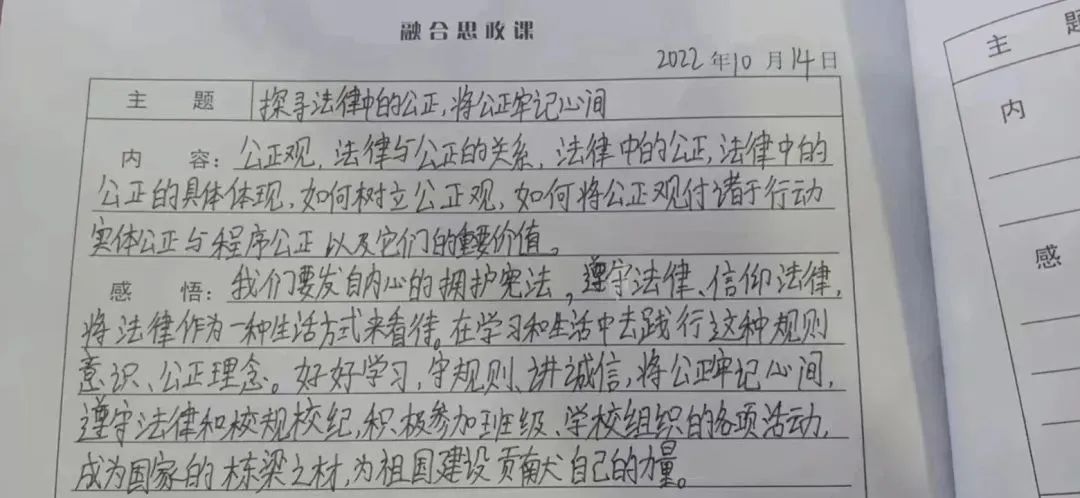 融合思政课
2022年10月14日
主 题 探寻法律中的公正,将公正牢记心间
内 容: 公正观、法律与公正的关系、法律中的公正,法律中的
公正的具体体现、如何树立公正观、如何将公正观付诸于行动
实体公正与程序公正以及它们的重要价值。
感 悟: 我们要发自内心的拥护宪法,遵守法律、信仰法律,
将法律作为一种生活方式来看待。在学习和生活中去践行这种规则
意识、公正理念。好好学习,守规则、讲诚信,将公正牢记心间,
遵守法律和校规校纪,积极参加班级、学校组织的各项活动,
成为国家的栋梁之材,为祖国建设贡献自己的力量。
主 题
内
感